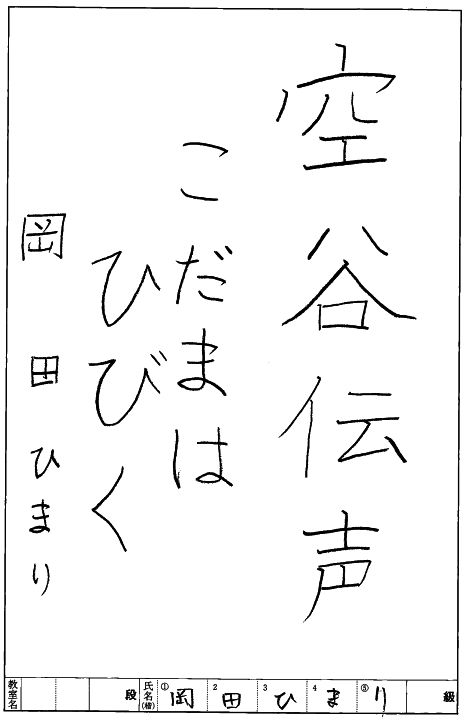 空谷伝声
こだまは
ひびく
岡田ひまり
教室名 段 氏名(楷) ①岡 2田 3ひ 4ま ⑤り 級